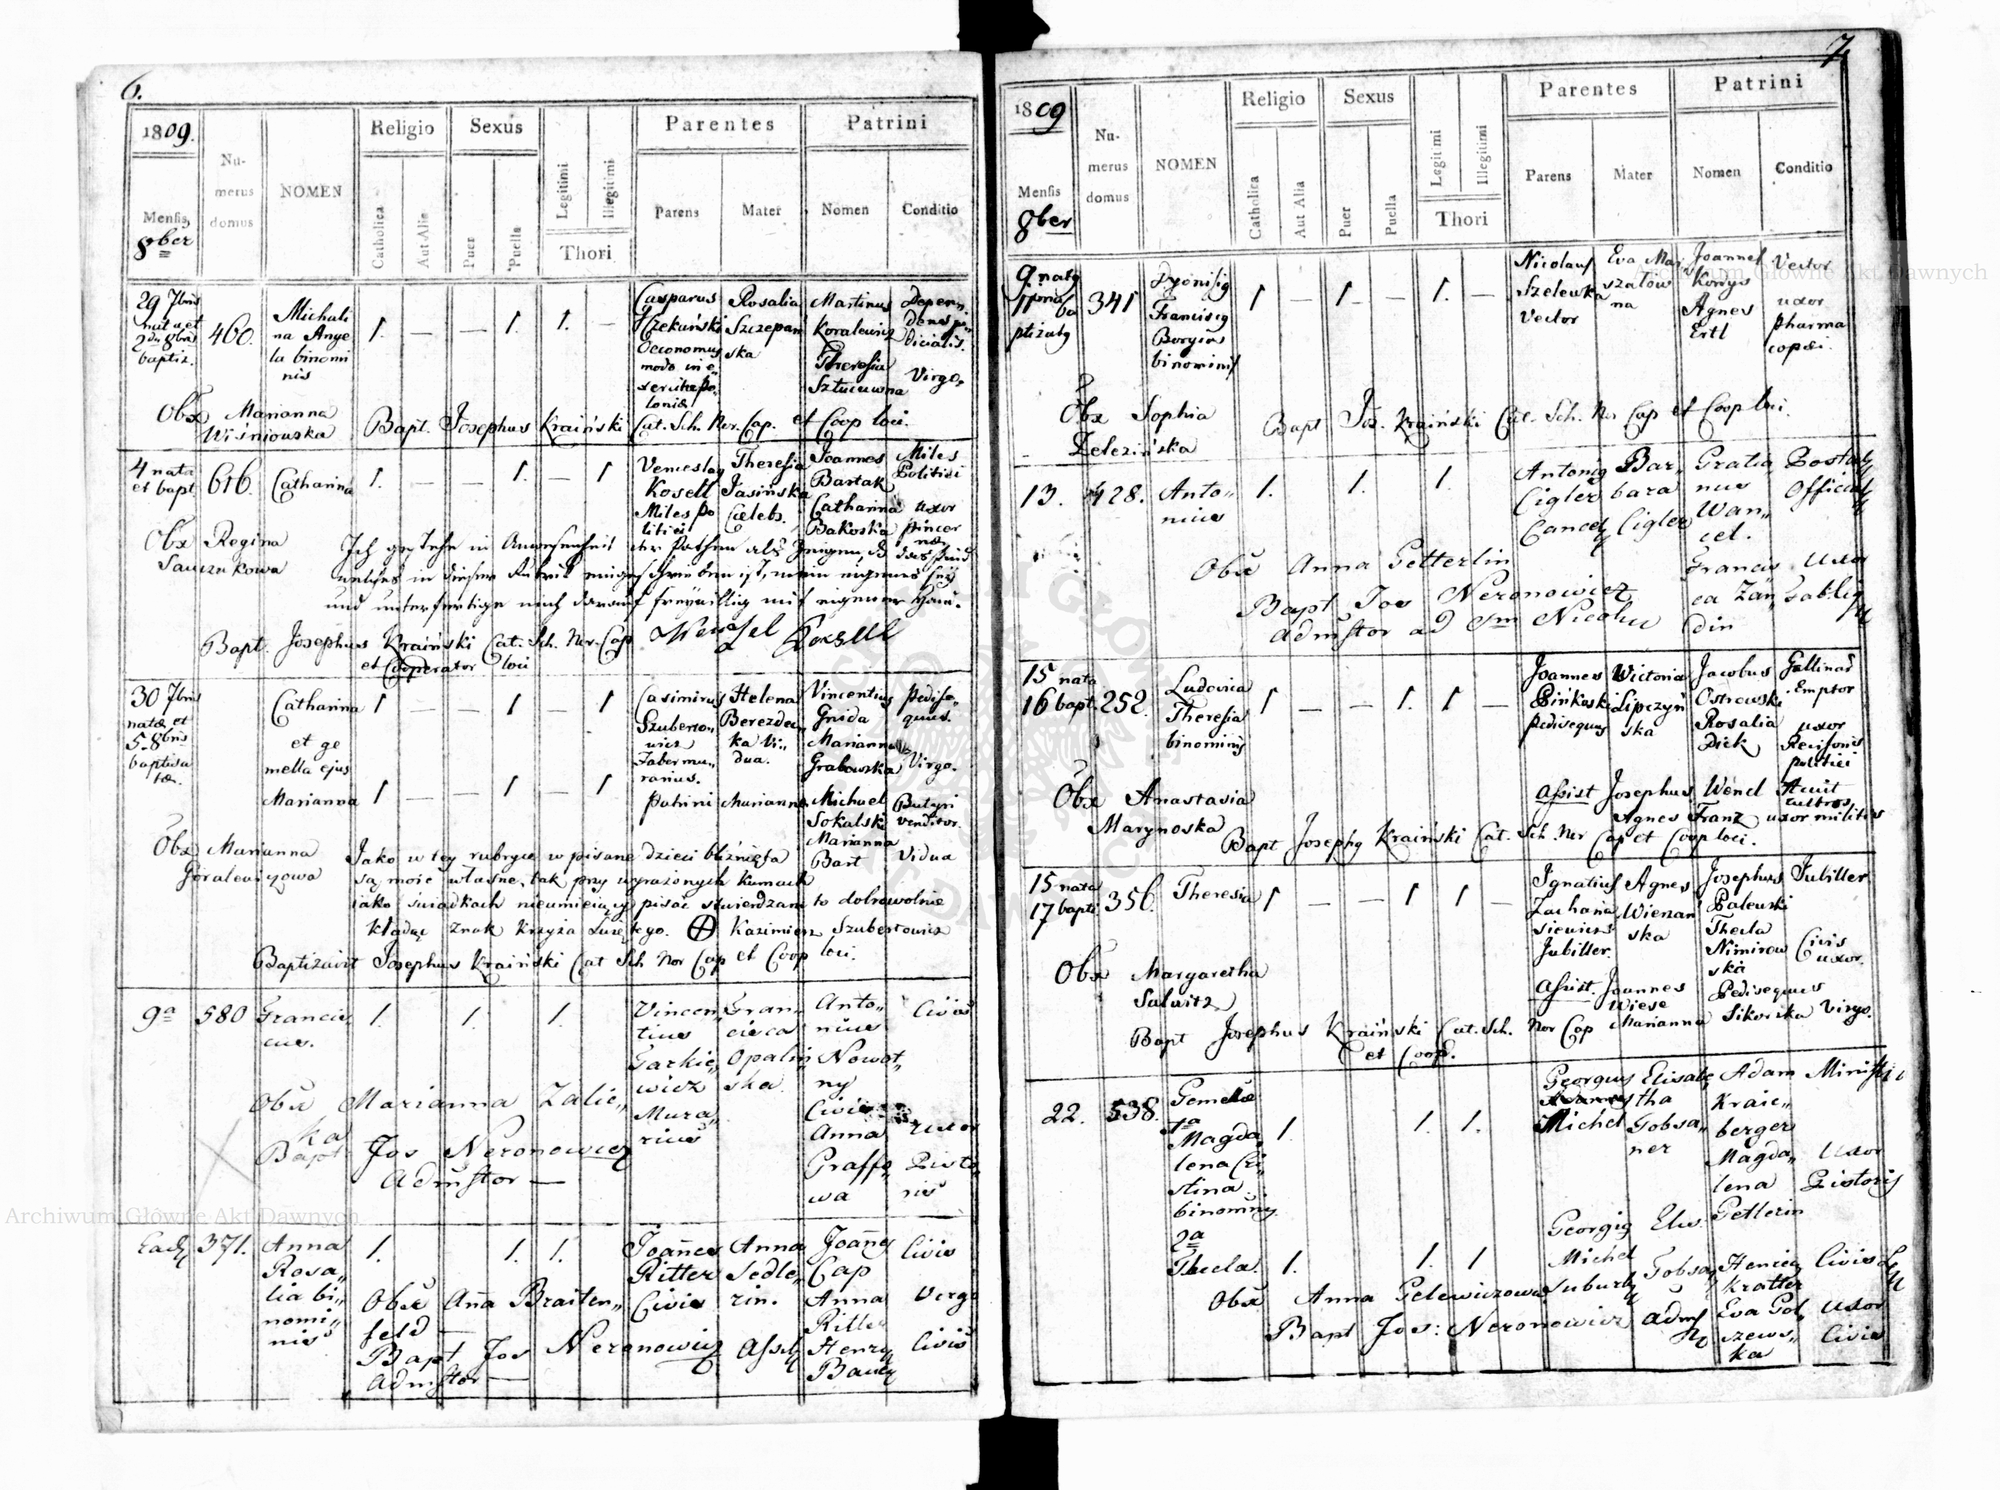 6.
1809.
Mensis
8ber
Numerus domus
NOMEN
Religio
Catholica
Aut Alia
Sexus
Puer
Puella
Legitimi
Illegitimi
Thori
Parentes
Parens
Mater
Patrini
Nomen
Conditio
29 7bris
nata et
2da 8bris
baptiz.
460.
Michali
na Ange
la binomi
nis
1. — — 1. 1. —
Casparus
Oeconomus
modo in e
xercitu Po
loniæ
Rosalia
Szczepań
ska
Martinus
Koralewicz
Theresia
Depen
dens
dicialis.
Virgo.
Obx Marianna
Wiśniouska
Bapt. Josephus Kraiński Cat. Sch. Nor. Cap. et Coop loci.
4 nata
et bapt
616.
Catharina
1. — — 1. — 1
Venceslaq
Kosell
Miles po
litiei
Theresia
Jasińska
Cælebs.
Joannes
Bartak
Catharina
Bakoska
Miles
Politici
uxor
pincer
næ
Obx Regina
Ich gestehe in Anwesenheit der Pathen als Zeugen, daß das Kind
welches in dieser Rubrik eingeschrieben ist, mein eigenes sey
und unterfertige mich darauf freywillig mit eigener Han.
Wenzel Kosell
Bapt. Josephus Kraiński Cat. Sch. Nor. Cap
et Cooperator loci
30 7bris
natæ et
5 8bris
baptisa
tæ.
Catharina
et ge
mella ejus
Marianna
1 — — 1 — 1
1 — — 1 — 1
Casimirus
Szuberto
wicz
murarius.
Helena
Berezdec
ka Vi
dua.
Vincentius
Gnida
Marianna
Grabowska
Pedise
quus.
Virgo.
Patrini Marianna
Michael
Sokalski
Marianna
Bart
Butyri
venditor.
Vidua
Obx Marianna
Góralewiczowa
Jako w tey rubryce w pisane dzieci bliźnięta
są moie własne, tak przy wyrażonych Kumach
iako świadkach nieumieiący pisać stwierdzam to dobrowolnie
kładąc znak krzyża Święteg. ⊕ Kazimierz Szubertowicz
Baptizavit Josephus Kraiński Cat Sch Nor Cap et Coop loci.
9a
580
Francis
cus.
1. 1. 1.
Vincen
tius
Murarius
Fran
cisca
Opaliń
ska
Anto
nius
Nowot
ny
Civis
Anna
Graffo
wa
Civis
Uxor
Pisto
ris
Obx Marianna Zalic
ka
Bapt Jos Neronowicz
Admstor —
Eadq
371.
Anna
Rosa
lia bi
nomi
nis
1. 1. 1.
Joannes
Ritter
Civis
Anna
Sedle
rin.
Joannes
Cap
Anna
Ritter
Henryq
Civis
Virgo
Civis
Obx Anna Braiten
feld —
Bapt Jos Neronowicz
Admstor —
7.
1809
Mensis
8ber
Numerus domus
NOMEN
Religio
Catholica
Aut Alia
Sexus
Puer
Puella
Legitimi
Illegitimi
Thori
Parentes
Parens
Mater
Patrini
Nomen
Conditio
9. natq
11 ma ba
ptizatq
341
Dyonisiq
Franciscq
Borgias
binominis
1 — 1 — 1. —
Nicolaus
Szelewka
Vector
Eva Mar
szatow
na
Joannes
Konys
Agnes
Ertl
Vector
uxor
pharma
copæi.
Obx Sophia
Zelezińska
Bapt Jos. Kraiński Cat. Sch. Nor Cap et Coop loci.
13.
428.
Anto
nius
1. 1. 1.
Antoniq
Cigler
Bar
bara
Cigler
Gratia
nus
Wan
cel.
Francis
ca Zän
din
Postalq
Officialq
Uxor
Obx Anna Petterlin
Bapt Jos Neronowicz
Admstor ad Sm Nicolau
15 nata
16 bapt.
252.
Ludovica
Theresia
binominis
1 — — 1. 1 —
Joannes
Pinkuski
Pedisequus
Wictoria
Lipczyń
ska
Jacobus
Ostrowski
Rosalia
Dick
Gallinar
Emptor
uxor
politici
Obx Anastasia
Marynoska
Assist Josephus Wencl
Agnes Franz uxor militis
Bapt Josephq Kraiński Cat. Sch. Nor Cap et Coop loci.
15 nata
17 bapt
356.
Theresia
1 — — 1 1 —
Ignatius
Zacharia
siewicz
Jubiller.
Agnes
Wienzań
ska
Josephus
Palewski
Thecla
Nimirow
ska
Jubiller
Civis
uxor.
Obx Margaretha
Assist. Joannes Wiese Pedisequus
Marianna Sikorska Virgo.
Bapt Josephus Kraiński Cat. Sch. Nor Cap
et Coop.
22.
538.
Gemelæ
1a
Magda
lena Cri
stina
binominq
2a
Thecla.
1. 1. 1.
1. 1. 1
Georgius
Michel
Elisabe
tha
Gobsa
ner
Adam
Kraic
berger
Magda
lena
Petlerin
Uxor
Pistoris
Georgiq
Michel
Elis.
Gobsa
Henricq
Kratter
Eva Gol
szews
ka
Civis
Uxor
Civis
Obx Anna Pelewiczowa
Bapt Jos: Neronowicz Adms
Archiwum Główne Akt Dawnych
Archiwum Główne Akt Dawnych